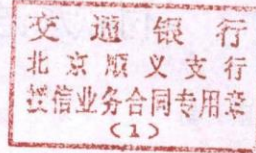 交通银行
北京顺义支行
授信业务合同专用章
(1)